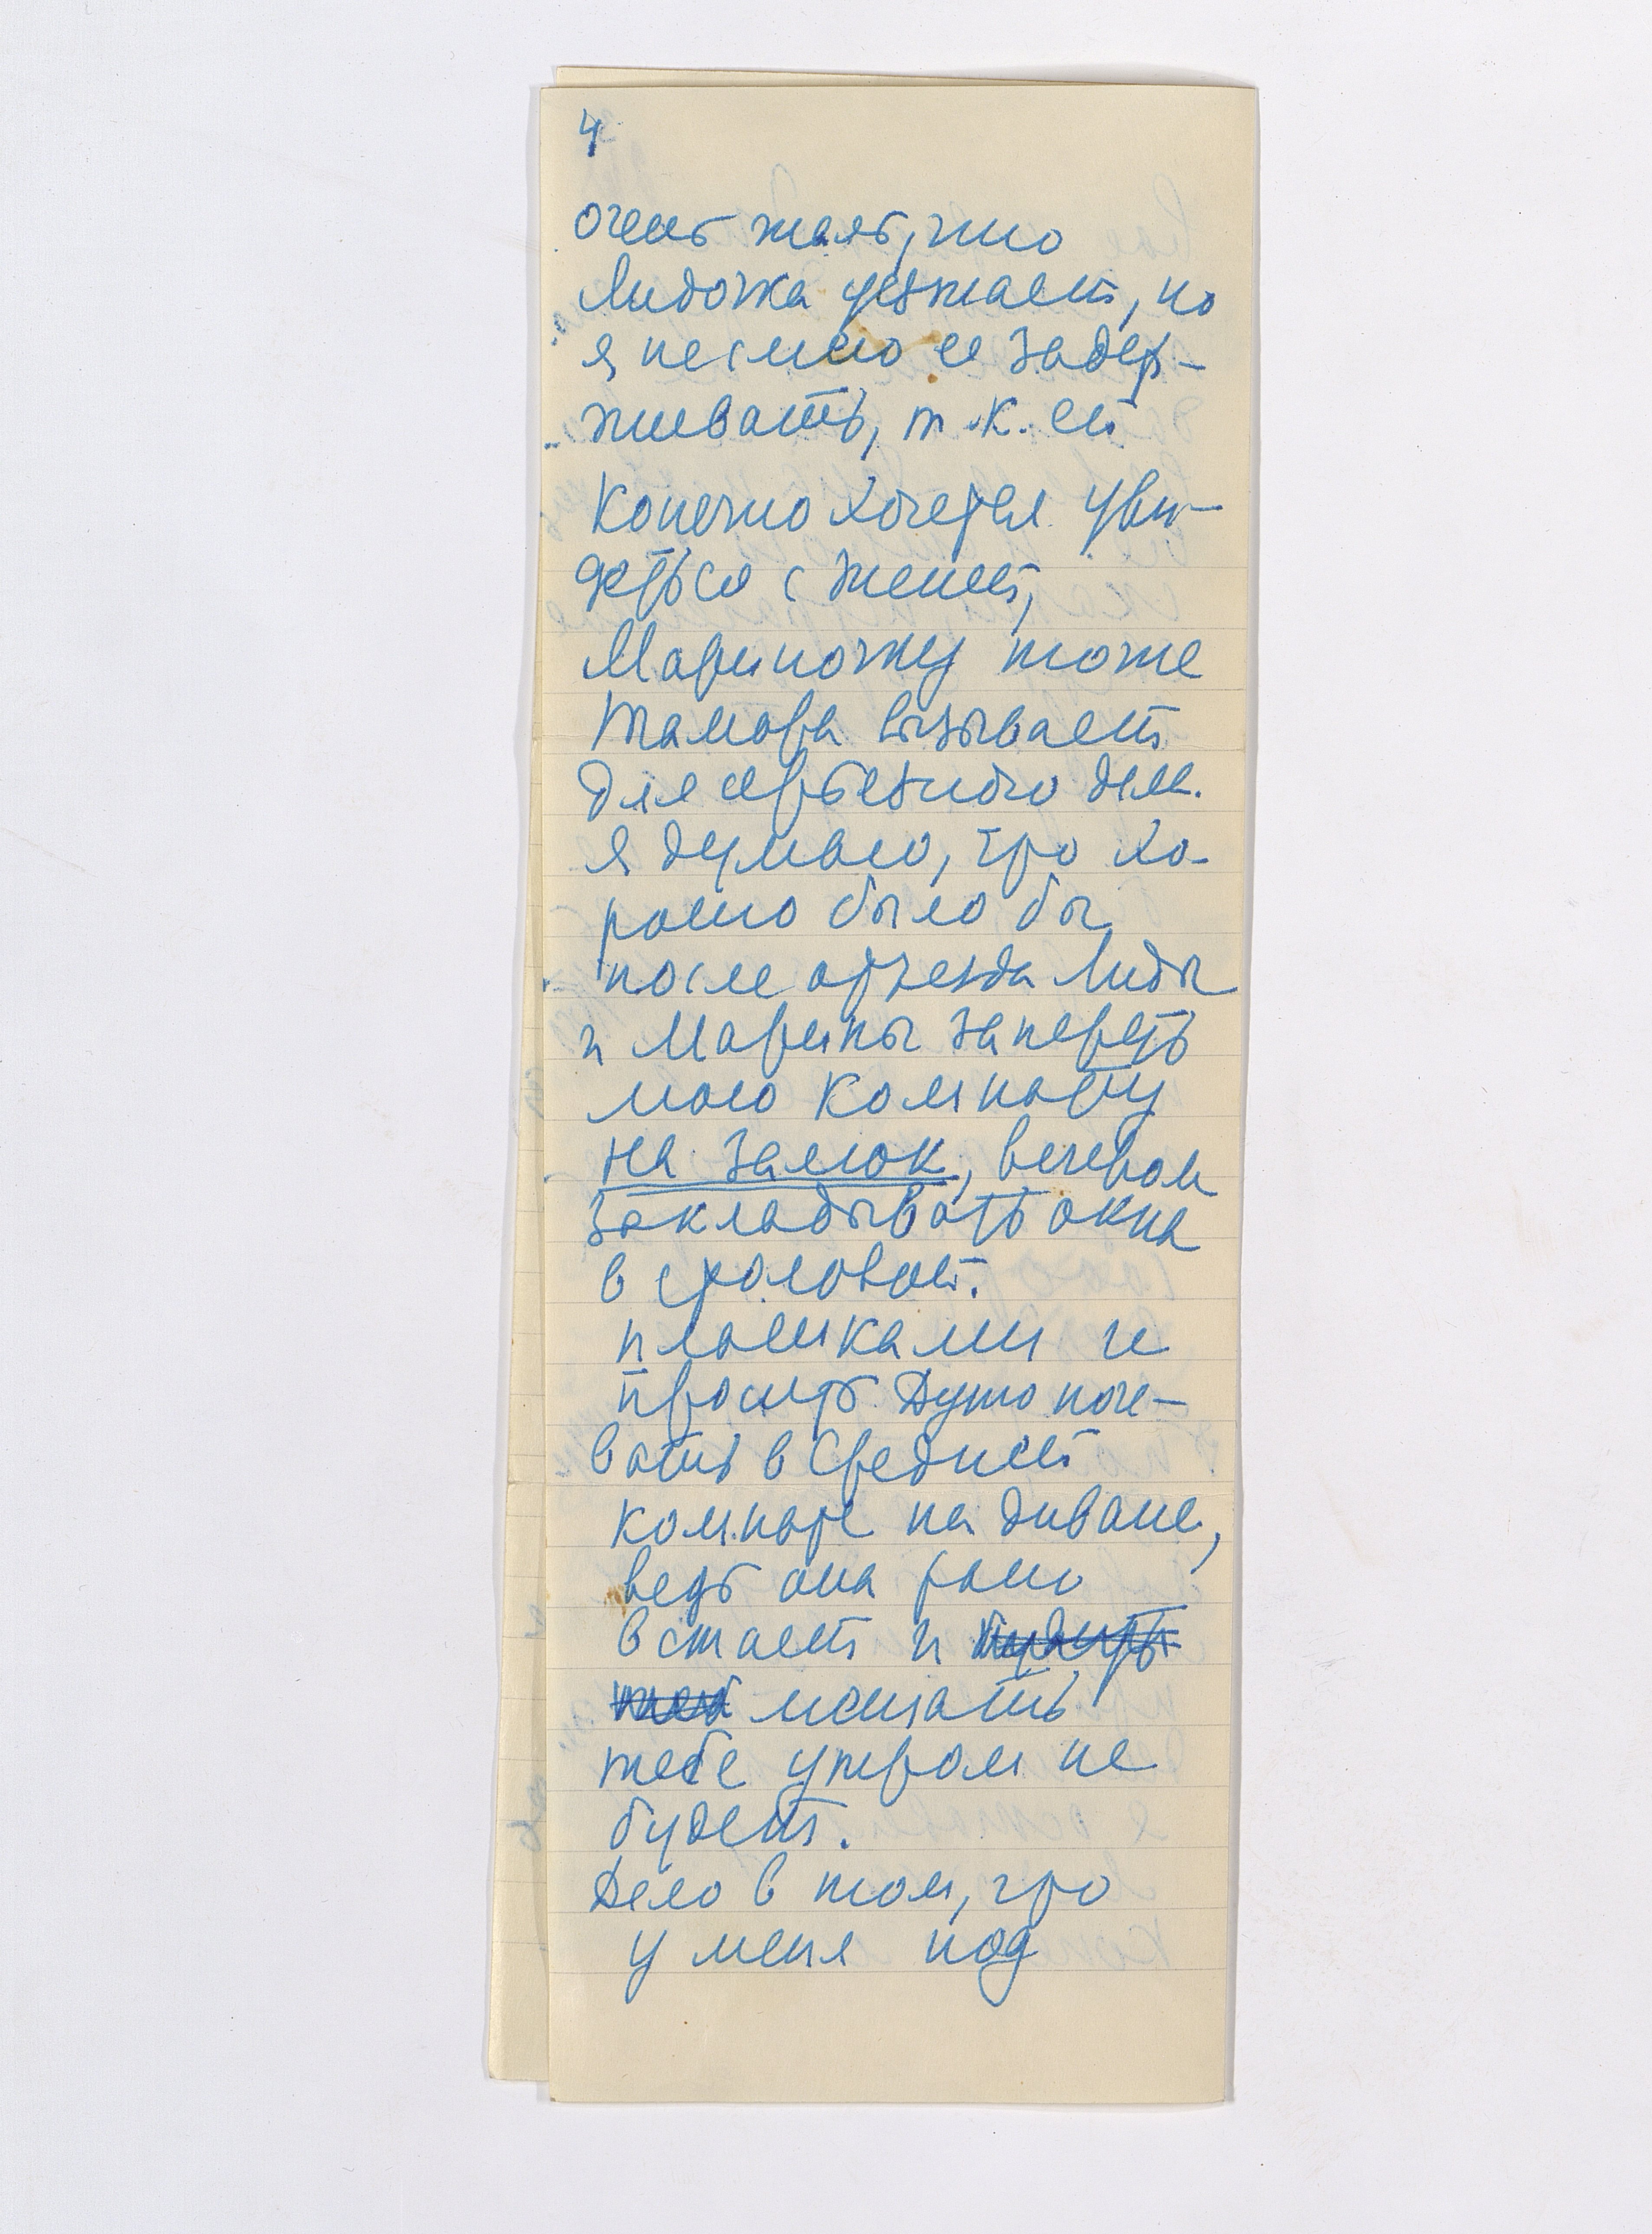 4
очень жаль, что
Лидочка уезжает, но
я не смею ее задер-
живать, т.к. ей
конечно хочется уви-
деться с Женей,
Мариночку тоже
Тамара вызывает
для серьезного дела.
Я думаю, что хо-
рошо было бы
после отъезда Лиды
и Марины запереть
мою комнату
на замок, вечером
закладывать окна
в столовой
плашками и
просить Дуню ноче-
вать в средней
комнате на диване,
ведь она рано
встает и
мешать
тебе утром не
будет.
Дело в том, что
у меня под